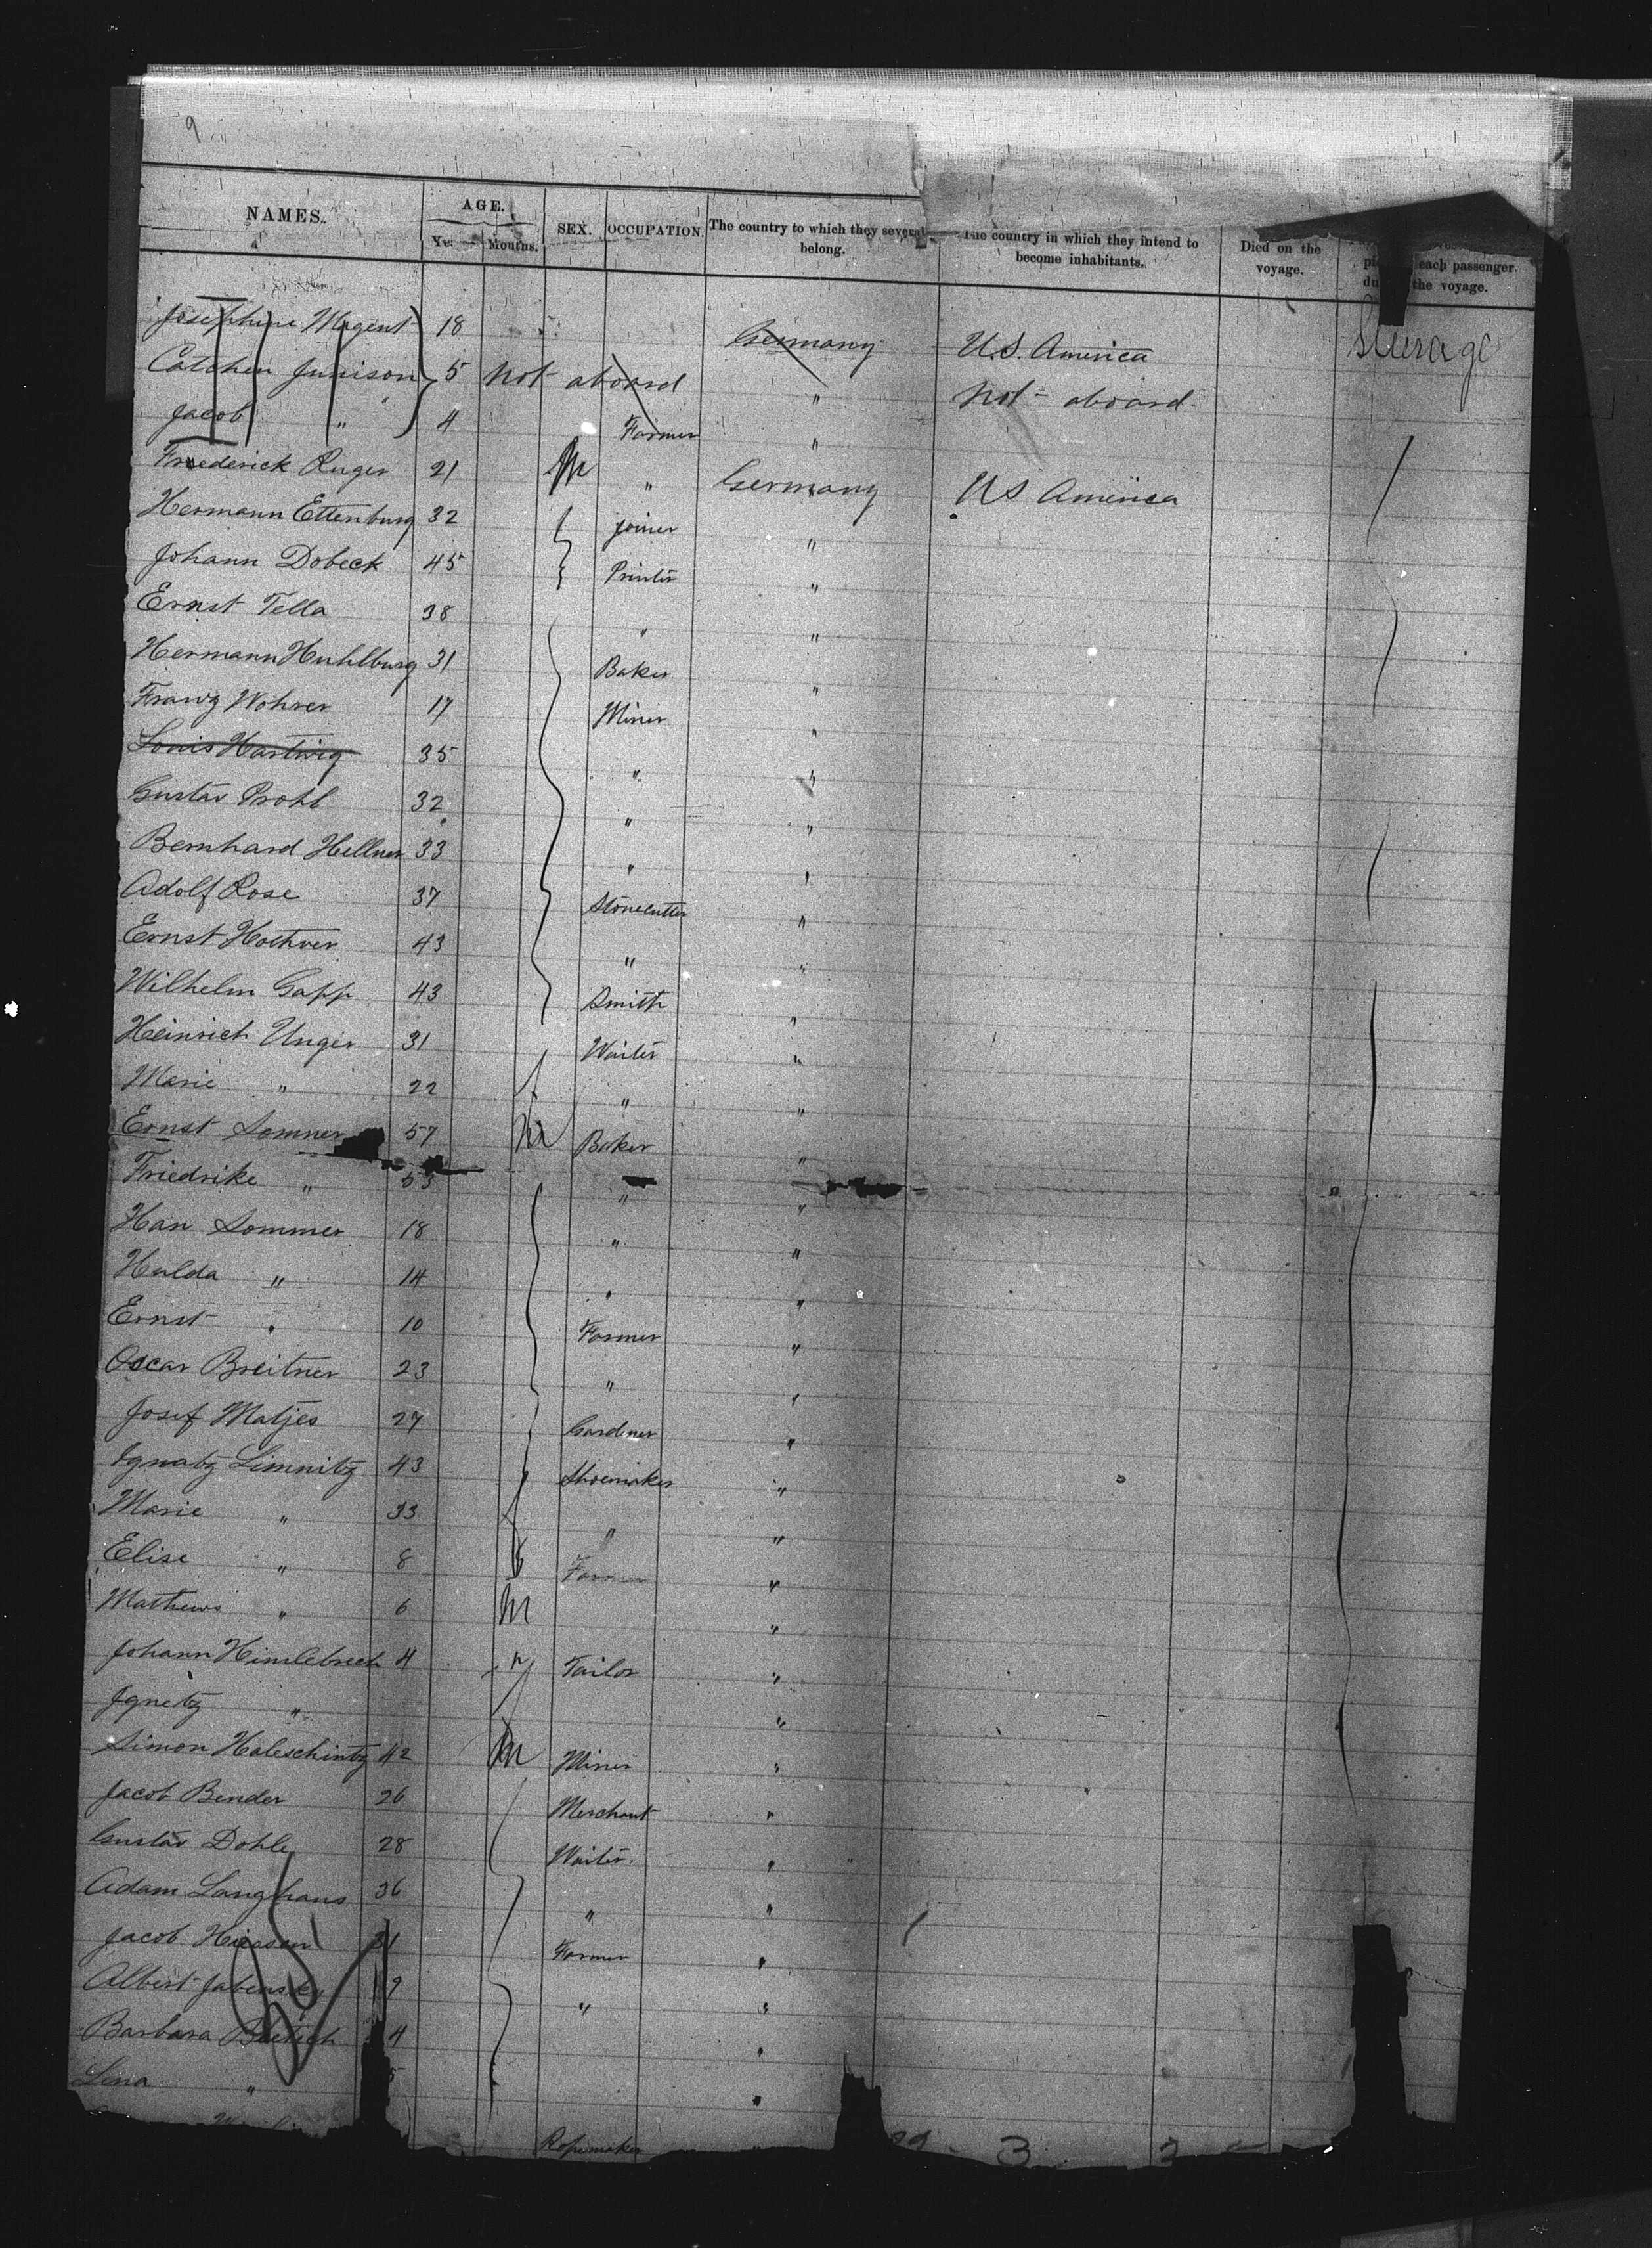 9
NAMES. AGE. SEX. OCCUPATION. The country to which they several belong. The country in which they intend to become inhabitants. Died on the voyage. each passenger the voyage.
Months.
Josephine 18 Germany U.S. America Steerage
5 not aboard " not aboard
Jacob " 4 Farmer "
Frederick Ruger 21 M " Germany US America
Hermann Ettenburg 32 Joiner "
Johann Dobeck 45 Printer "
Ernst Tella 38 " "
Hermann Huhlburg 31 Baker "
Franz Wohrer 17 Miner "
Louis Hartwig 35 " "
Gustav Prohl 32 " "
Bernhard Hellner 33 " "
Adolf Rose 37 Stonecutter "
Ernst 43 " "
Wilhelm Gapp 43 Smith "
Heinrich Unger 31 Waiter "
Marie " 22 f " "
Ernst Somner 57 M Baker "
Friedrike " 53 " "
Han Sommer 18 " "
Hulda " 14 " "
Ernst " 10 Farmer "
Oscar Breitner 23 " "
Josef Matjes 27 Gardener "
Ignatz Limnitz 43 Shoemaker "
Marie " 33 f " "
Elise " 8 Farmer "
Mathews " 6 M "
Johann 4 Tailor "
Ignetz " "
Simon Haleschintz 42 M Miner "
Jacob Bender 26 Merchant "
Gustav Dohle 28 Waiter "
Adam Langhans 36 " "
Jacob 31 Farmer "
Albert " "
Barbara 4 "
Lina " "
Ropemaker " 3 2